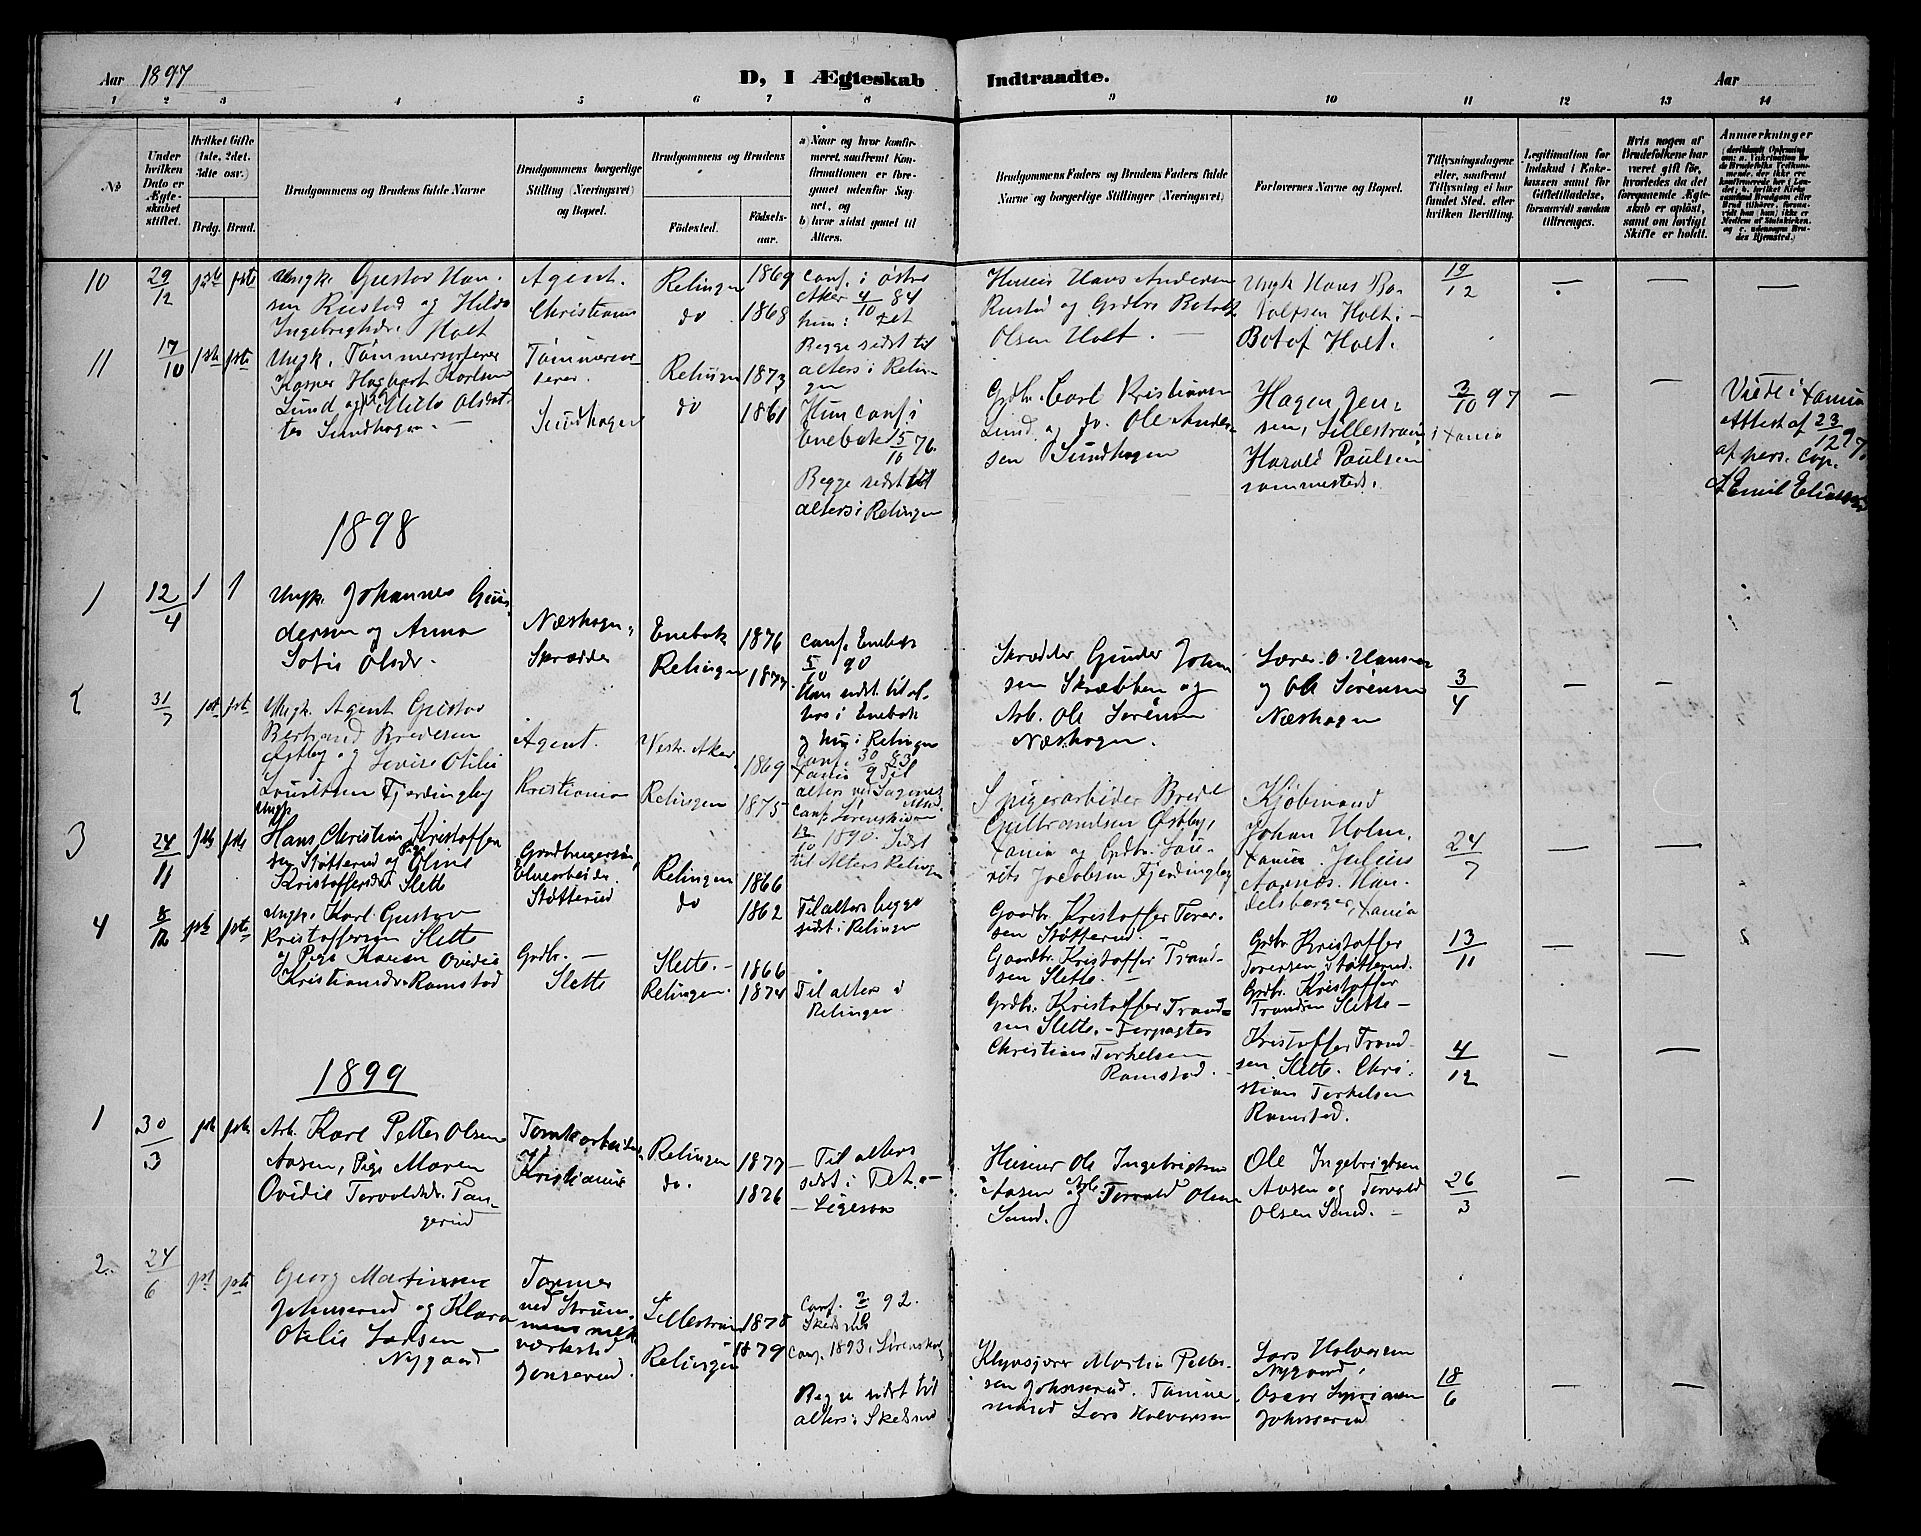 Aar 1897
D, I Ægteskab Indtraadte.
Aar
1 2 3 4 5 6 7 8 9 10 11 12 13 14
№
Under hvilken Dato er Ægteskabet stiftet.
Hvilket Gifte (1ste, 2det, 3dte osv.)
Brdg. Brud.
Brudgommens og Brudens fulde Navne
Brudgommens borgerlige Stilling (Næringsvei) og Bopæl.
Brudgommens og Brudens
Fødested.
Fødsels-aar.
a) Naar og hvor konfirmeret, saafremt Konfirmationen er foregaaet udenfor Sognet, og
b) hvor sidst gaaet til Alters.
Brudgommens Faders og Brudens Faders fulde Navne og borgerlige Stillinger (Næringsvei)
Forlovernes Navne og Bopæl.
Tillysningsdagene eller, saafremt Tillysning ei har fundet Sted, efter hvilken Bevilling.
Legitimation for Indskud i Enkekassen samt for Giftetilladelse, forsaavidt saadan tiltrænges.
Hvis nogen af Brudefolkene har været gift før, hvorledes da det foregaaende Ægteskab er opløst, samt om lovligt Skifte er holdt.
Anmærkninger
10 29/12 1ste 1ste
Ungk. Gustav Hansen Rustad og Hilda Ingebrigtsdr. Holt
Agent. Christiania
Relingen 1869
do 1868
Conf. i Østre Aker 4/10 84
Begge sidst til alters i Relingen
Husm Hans Andersen Rustad og Grdbr Botolf Olsen Holt. —
Ungk Hans Botolfsen Holt. — Botolf Holt.
19/12 — — —
11 17/10 1ste 1ste
Ungk. Tømmersorterer Kasper Hagbart Karlsen Lund og Pige Milla Olsdatter Sundhagen. —
Tømmersorterer. Sundhagen
Relingen 1873
do 1861
Hun conf. i Enebak 15/10 76.
Begge sidst til alters i Relingen
Grdbr. Carl Kristiansen Lund og do. Ole Andersen Sundhagen
Hagen Jensen, Lillestrøm, Harald Paulsen sammesteds.
3/10 97 i Xania — —
Viede i Xania Attest af 23/12 97 af pers. Cap. Emil Eliassen
1898
1 12/4 1 1
Ungk. Johannes Gundersen og Anna Sofie Olsdr.
Næshagen, Skrædder
Enebak 1876
Relingen 1877
Conf. Enebak 5/10 90
Han sidst til alters i Enebak og hun i Relingen
Skrædder Gunder Johansen Skræbben og Arb. Ole Sørensen Næshagen.
Lærer O. Hansen og Ole Sørensen Næshagen
3/4 — —
2 31/7 1ste 1ste
Ungk. Agent Gustav Bertrand Bredesen Østby og Lovise Otilie Lauritsen Fjerdingby
Agent. Kristiania
Vestr. Aker 1869
Relingen 1875
Conf. 30/9 83 Xania
Til alters ved Sagenes
Conf. Lørenskogen 12/10 1890. Sidst til Alters Relingen
Spigerarbeider Brede Gulbrandsen Østby, Xania og Grdbr. Laurits Jacobsen Fjerdingby
Kjøbmand Johan Holm, Xania. Julius Aarnæs. Handelsborger, Xania
24/7 — —
3 24/11 1ste 1ste
Ungk. Hans Christian Kristoffersen Støtterud og Pige Oline Kristoffersdr. Slette
Gaardbrugersøn, Elvearbeider. Støtterud
Relingen 1866
do 1862
Til alters begge sidst i Relingen
Gaardbr. Kristoffer Toresen Støtterud. Gaardbr. Kristoffer Trandsen Slette. —
Grdbr Kristoffer Toresen Støtterud. Grdbr. Kristoffer Trandsen Slette —
13/11 — —
4 8/12 1ste 1ste
Ungk. Karl Gustav Kristoffersen Slette og Pige Karen Ovidia Kristiansdr. Ramstad
Grdbr. — Slette
Slette. — 1866
Relingen. 1874
Til alters i Relingen
Grdbr. Kristoffer Trandsen Slette. — Forpagter Christian Torkelsen Ramstad. —
Kristoffer Trandsen Slette. Christian Torkelsen Ramstad.
4/12 — —
1899
1 30/3 1ste 1ste
Arb. Karl Petter Olsen Aasen, Pige Maren Ovidie Torvaldsdr. Tangerud
Tomtearbeider Kristiania
Relingen 1877
do. 1876
— Til alters sidst i Fet. —
— Ligesaa
Husmd Ole Ingebrigtsen Aasen og Arb. Torvald Olsen Sand.
Ole Ingebrigtsen Aasen og Torvald Olsen Sand. —
26/3 — —
2. 24/6 1ste 1ste
Georg Martinsen Johnserud og Klara Otilie Larsen Nygaard
Former ved Strømmens mek. værksted Jonserud.
Lillestrøm 1878
Relingen 1879
Conf. 2/10 92. Skedsmo
Conf. 1893 i Lørenskog
Begge sidst til alters i Skedsmo
Klyvskjærer Martin Pettersen Johnserud. Tømmermand Lars Halvorsen
Lars Halvorsen Nygaard, Oscar Syversen Johnserud
18/6 — —